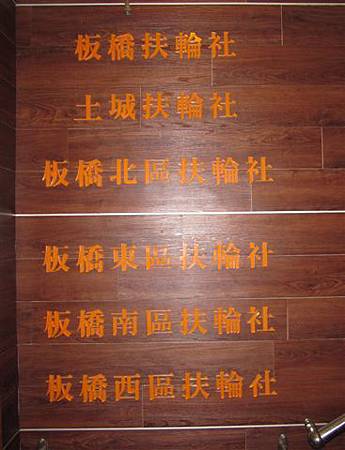 板橋扶輪社
土城扶輪社
板橋北區扶輪社
板橋東區扶輪社
板橋南區扶輪社
板橋西區扶輪社